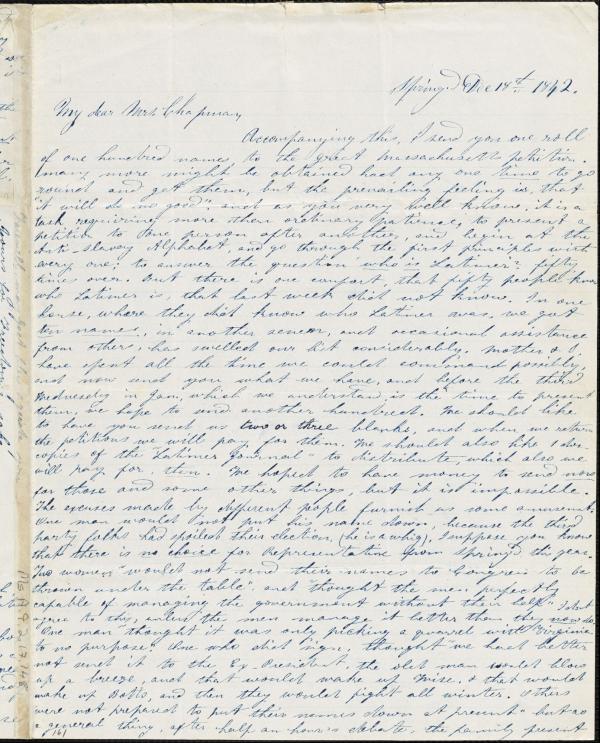 Spring.d Dec 18th 1842.
My dear Mrs Chapman,
Accompanying this, I send you one roll
of one hundred names, to the great Massachusetts petition.
many more might be obtained had any one time to go
round and get them, but the prevailing feeling is, that
"it will do no good" and as you very well know, it is a
task requiring more than ordinary patience, to present a
petition to one person after another, and begin at the
Anti-Slavery Alphabet, and go through the first principles with
every one; to answer the question "who is Latimer"? fifty
times over. But there is one comfort, that fifty people know
who Latimer is, that last week did not know. In one
house, where they did know who Latimer was, we got
ten names, in another seven, and occasional assistance
from others, has swelled our list considerably. Mother & I
have spent all the time we could command possibly,
and now send you what we have, and before the third
Wednesday in Jan, which we understand is the time to present
them, we hope to send another hundred. We should like
to have you send us two or three blanks, and when we return
the petitions we will pay for them. We should also like 1 doz
copies of the "Latimer Journal" to distribute, which also we
will pay for then. We hoped to have money to send now
for those and some other things, but it is impossible.
The excuses made by different people furnish us some amusement.
One man would not put his name down, because the third
party folks had spoiled their election, (he is a whig), I suppose you know
that there is no choice for Representative from Spring.d this year.
Two women "would not send their names to Congress to be
thrown under the table", and "thought the men perfectly
capable of managing the government without their help" I don't
agree to this, unless the men manage it better than they now do.
One man thought it was only picking a quarrel with Virginia
to no purpose. One who did sign, thought we had better
not send it to the Ex-President, the old man would blow
up a breeze, and that would wake up Wise, & that would
wake up Botts, and then they would fight all winter. Others
were not prepared to put their names down at present" but as
a general thing, after half an hour's debate, the family present
Ms.A.9.2.17.148